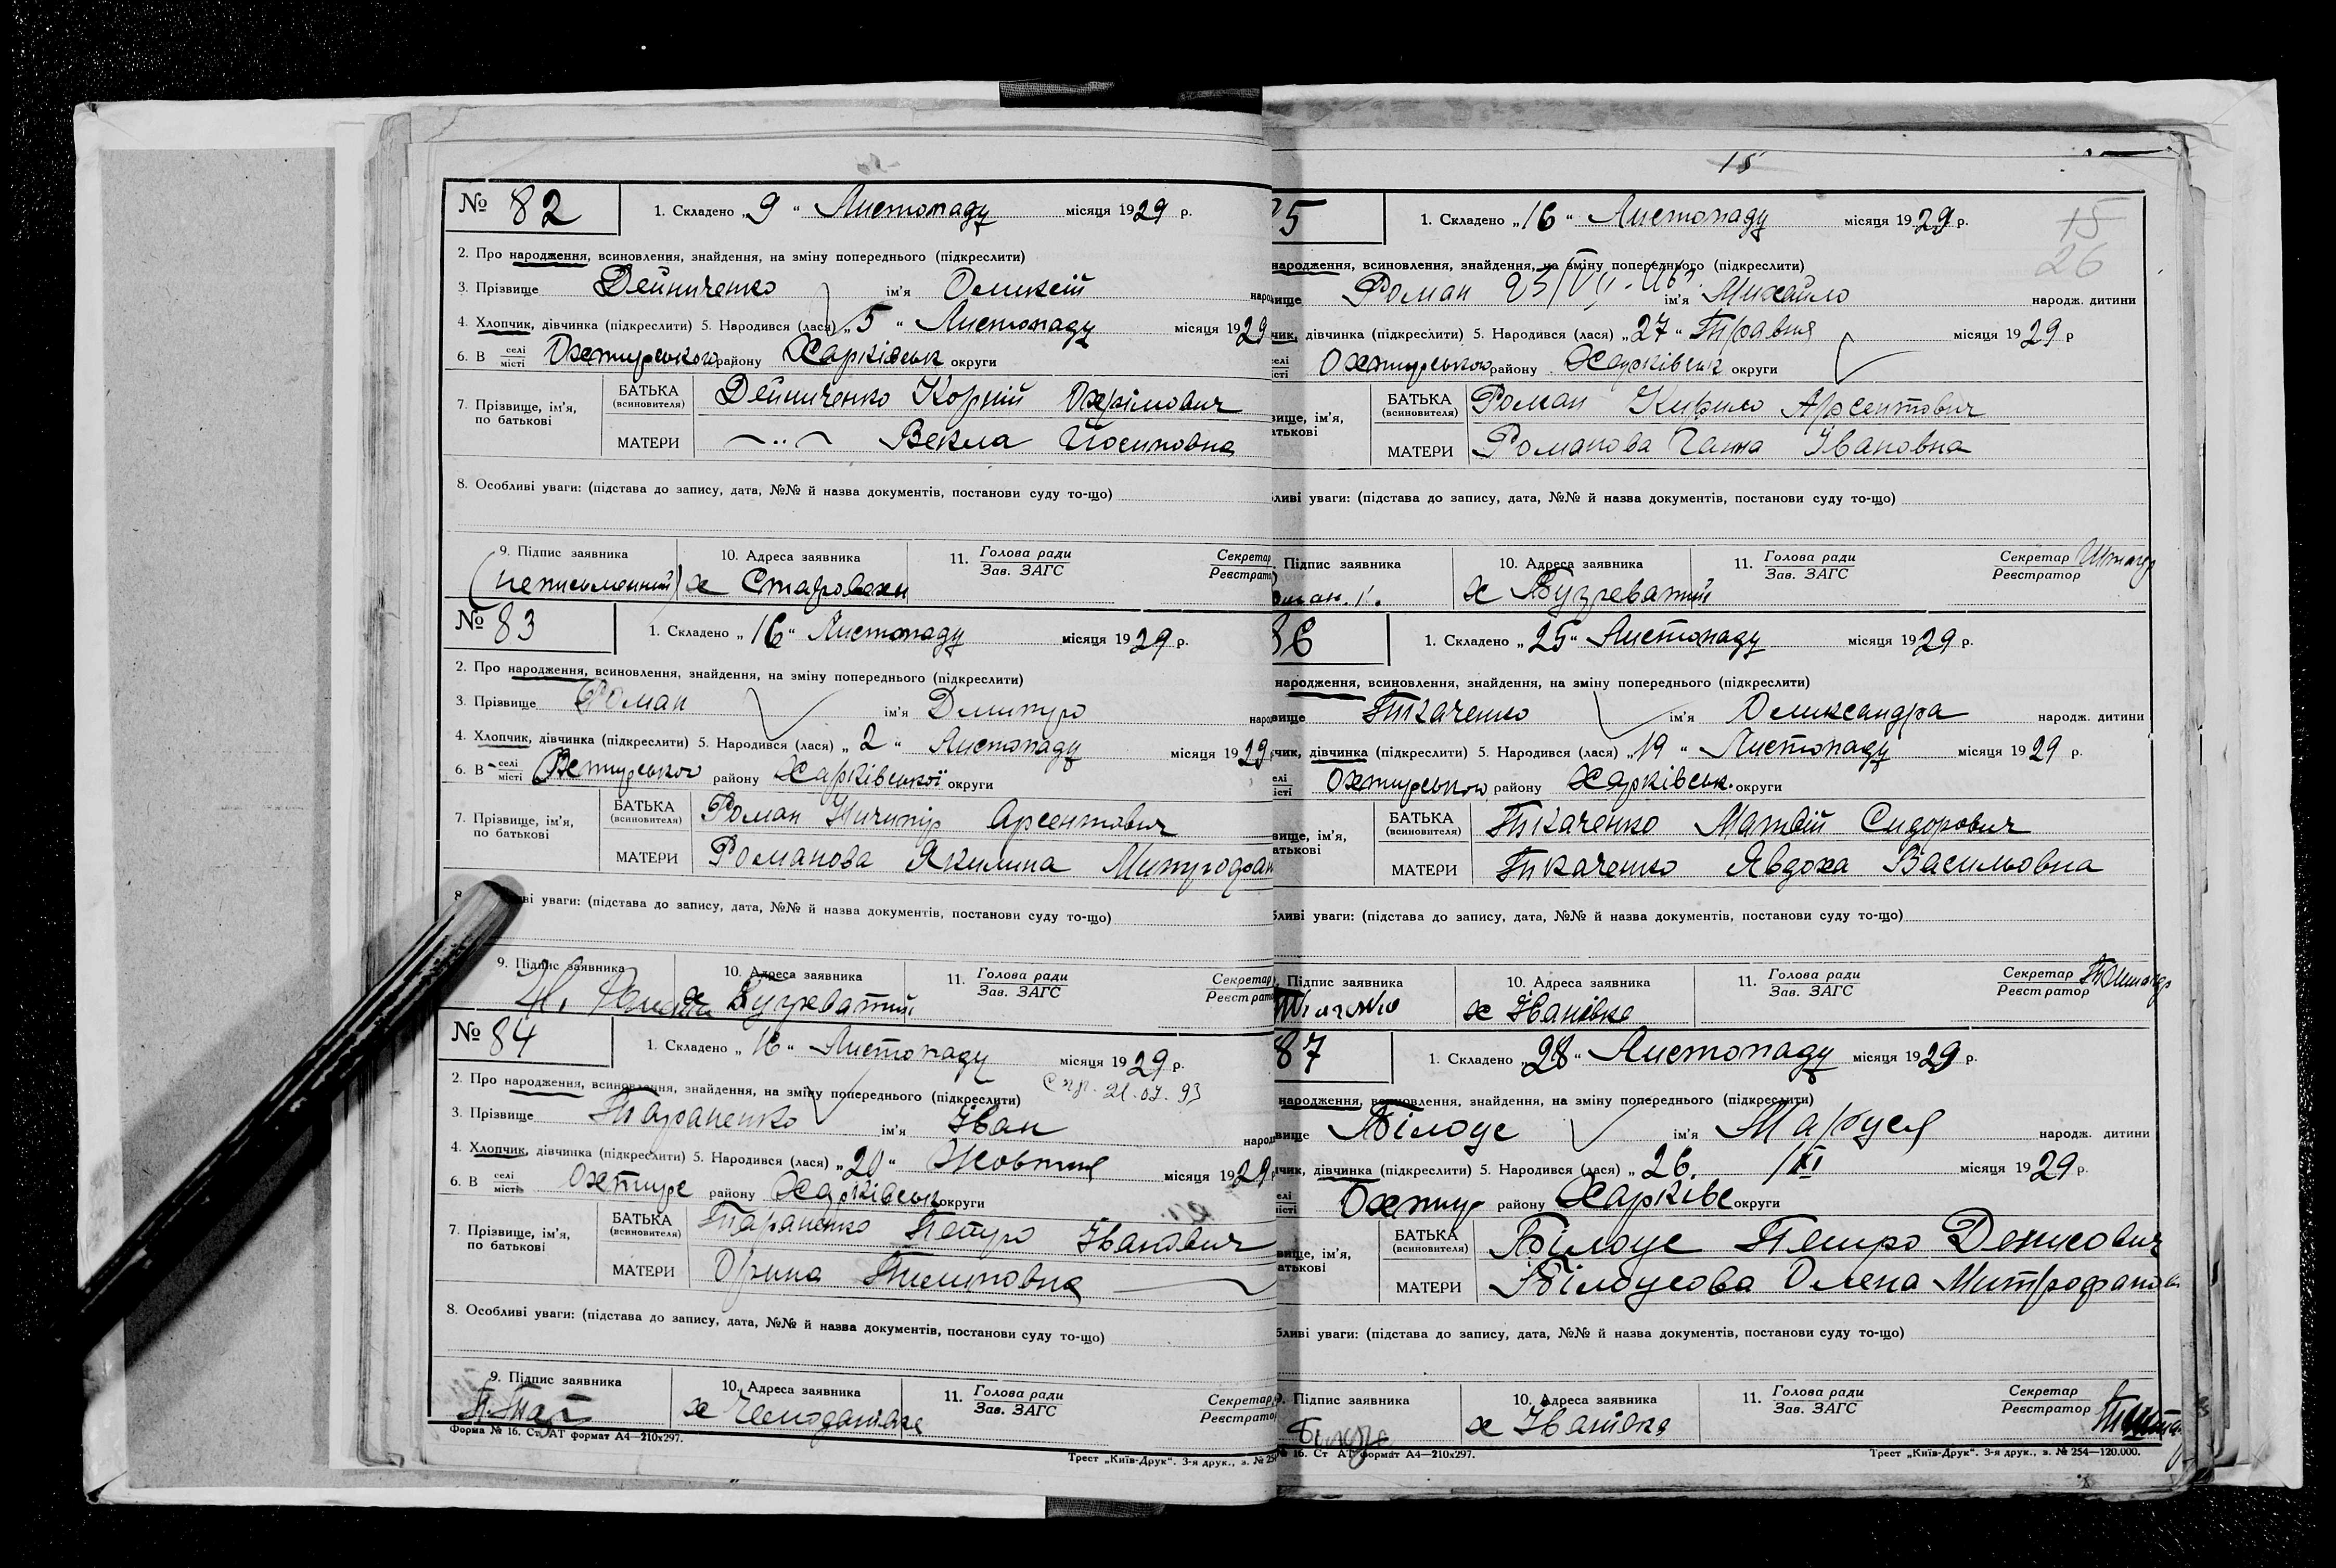 № 82 1. Складено „9“ Листопаду місяця 1929 р.
2. Про народження, всиновлення, знайдення, на зміну попереднього (підкреслити)
3. Прізвище Дейниченко ім'я Олексій
4. Хлопчик, дівчинка (підкреслити) 5. Народився (лася) „5“ Листопаду місяця 1929
6. В селі місті Охтирського району Харківськ округи
7. Прізвище, ім'я, по батькові БАТЬКА (всиновителя) Дейниченко Корній Охрімович
МАТЕРИ —··— Векла Йосиповна
8. Особливі уваги: (підстава до запису, дата, №№ й назва документів, постанови суду то-що)
9. Підпис заявника 10. Адреса заявника 11. Голова ради Зав. ЗАГС Секретар Реєстратор
(неписьменний) х
№ 83 1. Складено „16“ Листопаду місяця 1929 р.
2. Про народження, всиновлення, знайдення, на зміну попереднього (підкреслити)
3. Прізвище Роман ім'я Дмитро
4. Хлопчик, дівчинка (підкреслити) 5. Народився (лася) „2“ Листопаду місяця 1929
6. В селі місті району Харківської округи
7. Прізвище, ім'я, по батькові БАТЬКА (всиновителя) Роман Ничипір Арсентович
МАТЕРИ Романова Якилина Митрофан
8. уваги: (підстава до запису, дата, №№ й назва документів, постанови суду то-що)
9. Підпис заявника 10. Адреса заявника 11. Голова ради Зав. ЗАГС Секретар Реєстрато
Н. Роман х Бузреватий
№ 84 1. Складено „16“ Листопаду місяця 1929 р.
2. Про народження, всиновлення, знайдення, на зміну попереднього (підкреслити) 21.07.93
3. Прізвище Тараненко ім'я Іван
4. Хлопчик, дівчинка (підкреслити) 5. Народився (лася) „20“ Жовтня місяця 1929
6. В селі місті Охтирс району Харківськ округи
7. Прізвище, ім'я, по батькові БАТЬКА (всиновителя) Тараненко Петро Іванович
МАТЕРИ Орина Пилиповна
8. Особливі уваги: (підстава до запису, дата, №№ й назва документів, постанови суду то-що)
9. Підпис заявника 10. Адреса заявника 11. Голова ради Зав. ЗАГС Секретар Реєстрато
х
Форма № 16. Ст. АТ формат А4—210x297.
Трест „Київ-Друк“. 3-я друк., з. № 25
15
15
26
5 1. Складено „16“ Листопаду місяця 1929 р.
народження, всиновлення, знайдення, на зміну попереднього (підкреслити)
вище Роман ім'я Михайло народж. дитини
чик, дівчинка (підкреслити) 5. Народився (лася) „27“ Травня місяця 1929 р
селі місті Охтирського району Харківськ округи
БАТЬКА (всиновителя) Роман Кирило Арсентович
МАТЕРИ Романова Ганна Івановна
ливі уваги: (підстава до запису, дата, №№ й назва документів, постанови суду то-що)
Підпис заявника 10. Адреса заявника 11. Голова ради Зав. ЗАГС Секретар Реєстратор
х Бузреватий
86 1. Складено „25“ Листопаду місяця 1929 р.
народження, всиновлення, знайдення, на зміну попереднього (підкреслити)
вище Ткаченко ім'я Олександра народж. дитини
чик, дівчинка (підкреслити) 5. Народився (лася) „19“ Листопаду місяця 1929 р.
елі істі Охтирського району Харківськ. округи
БАТЬКА (всиновителя) Ткаченко Матвій Сидорович
МАТЕРИ Ткаченко Явдоха Васильовна
ливі уваги: (підстава до запису, дата, №№ й назва документів, постанови суду то-що)
Підпис заявника 10. Адреса заявника 11. Голова ради Зав. ЗАГС Секретар Реєстратор
х Іванівка
87 1. Складено „28“ Листопаду місяця 1929 р.
народження, всиновлення, знайдення, на зміну попереднього (підкреслити)
вище Білоус ім'я Маруся народж. дитини
чик, дівчинка (підкреслити) 5. Народився (лася) „26 /XI місяця 1929 р.
елі істі Охтир району Харківс округи
БАТЬКА (всиновителя) Білоус Петро Денисович
МАТЕРИ Білоусова Олена Митрофанов
ливі уваги: (підстава до запису, дата, №№ й назва документів, постанови суду то-що)
Підпис заявника 10. Адреса заявника 11. Голова ради Зав. ЗАГС Секретар Реєстратор
Білоус х Іванівка
№ 16. Ст АТ формат А4—210x297.
Трест „Київ-Друк“. 3-я друк., з. № 254—120.000.